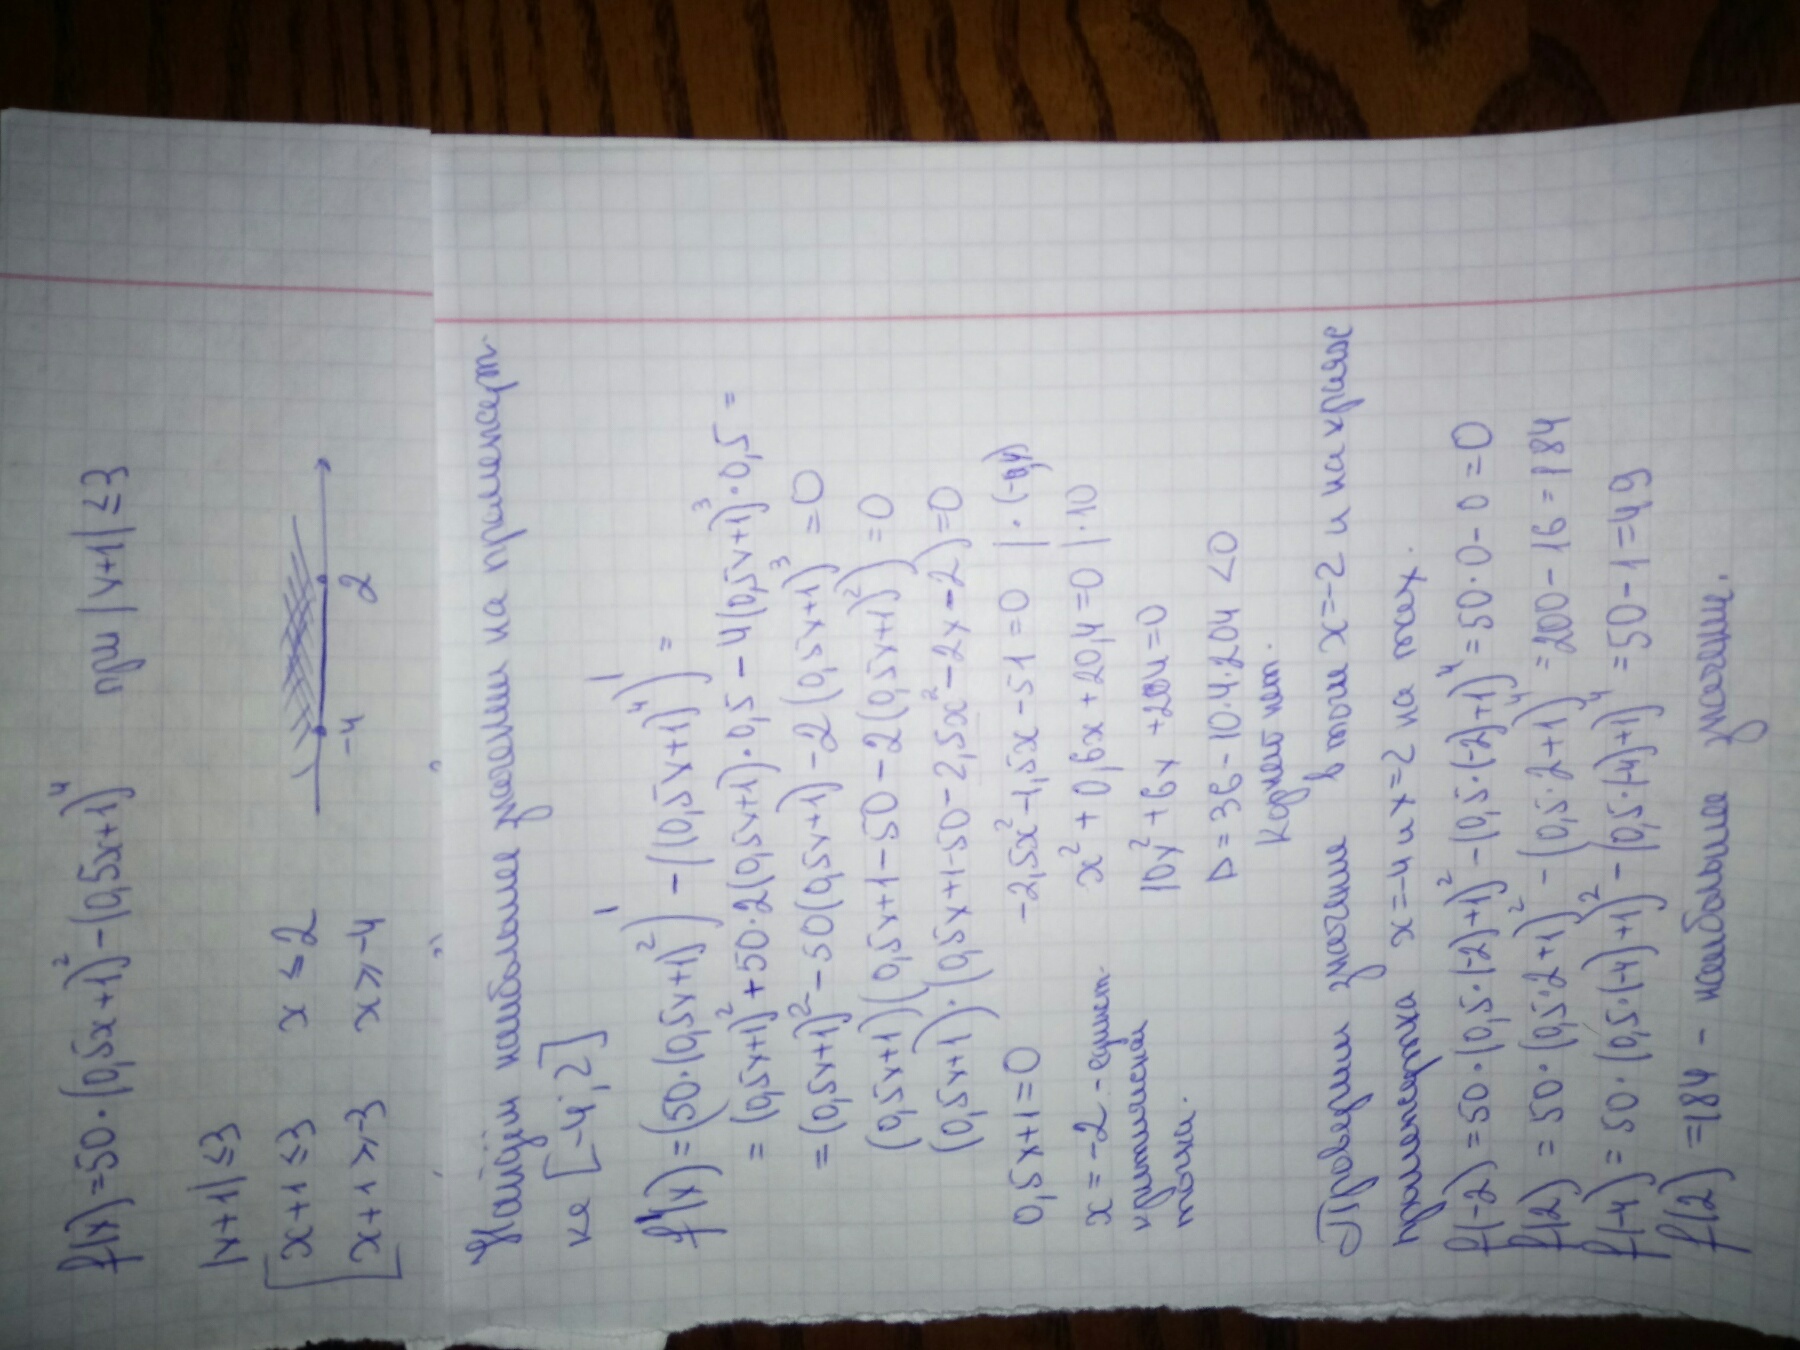 f(x)=50·(0,5x+1)²-(0,5x+1)⁴ при |x+1|≤3
|x+1|≤3
[x+1≤3 x≤2
[x+1≥-3 x≥-4
-4 2
Найдём наибольшее значение на промежут-
ке [-4;2]
f'(x)=(50·(0,5x+1)²)'-((0,5x+1)⁴)'=
=(0,5x+1)²+50·2(0,5x+1)·0,5-4(0,5x+1)³·0,5=
=(0,5x+1)²-50(0,5x+1)-2(0,5x+1)³=0
(0,5x+1)(0,5x+1-50-2(0,5x+1)²)=0
(0,5x+1)·(0,5x+1-50-2,5x²-2x-2)=0
0,5x+1=0 -2,5x²-1,5x-51=0 |·(-0,4)
x=-2 -единст. x²+0,6x+20,4=0 |·10
критическая 10x²+6x+204=0
точка. D=36-10·4·204<0
Корней нет.
Проверим значение в точке x=-2 и на краях
промежутка x=-4 и x=2 на max.
f(-2)=50·(0,5·(-2)+1)²-(0,5·(-2)+1)⁴=50·0-0=0
f(2)=50·(0,5·2+1)²-(0,5·2+1)⁴=200-16=184
f(-4)=50·(0,5·(-4)+1)²-(0,5·(-4)+1)⁴=50-1=49
f(2)=184 - наибольшее значение.